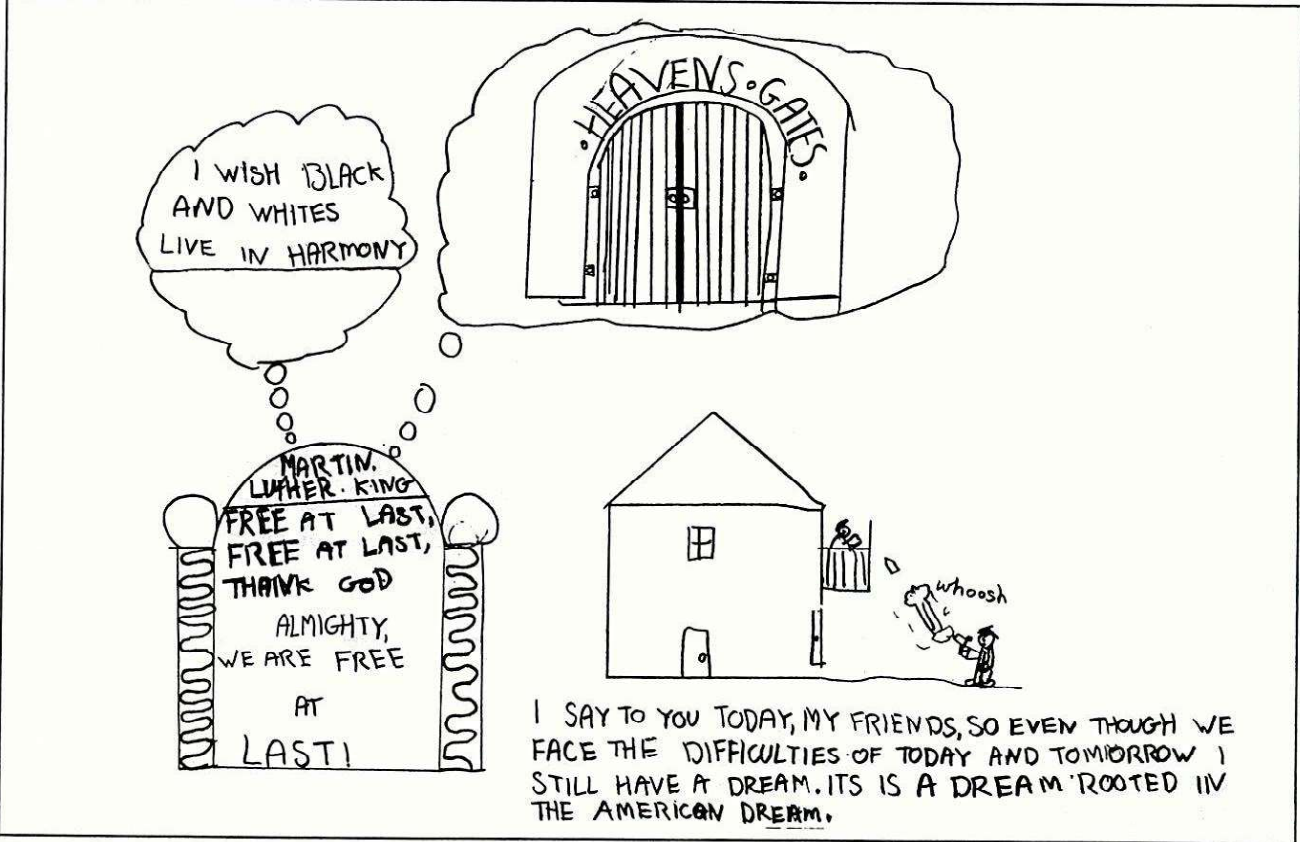 HEAVENS. GATES.
I WISH BLACK
AND WHITES
LIVE IN HARMONY
MARTIN.
LUTHER. KING
FREE AT LAST,
FREE AT LAST,
THANK GOD
ALMIGHTY,
WE ARE FREE
AT
LAST!
whoosh
I SAY TO YOU TODAY, MY FRIENDS, SO EVEN THOUGH WE
FACE THE DIFFICULTIES OF TODAY AND TOMORROW I
STILL HAVE A DREAM. ITS IS A DREAM ROOTED IN
THE AMERICAN DREAM.